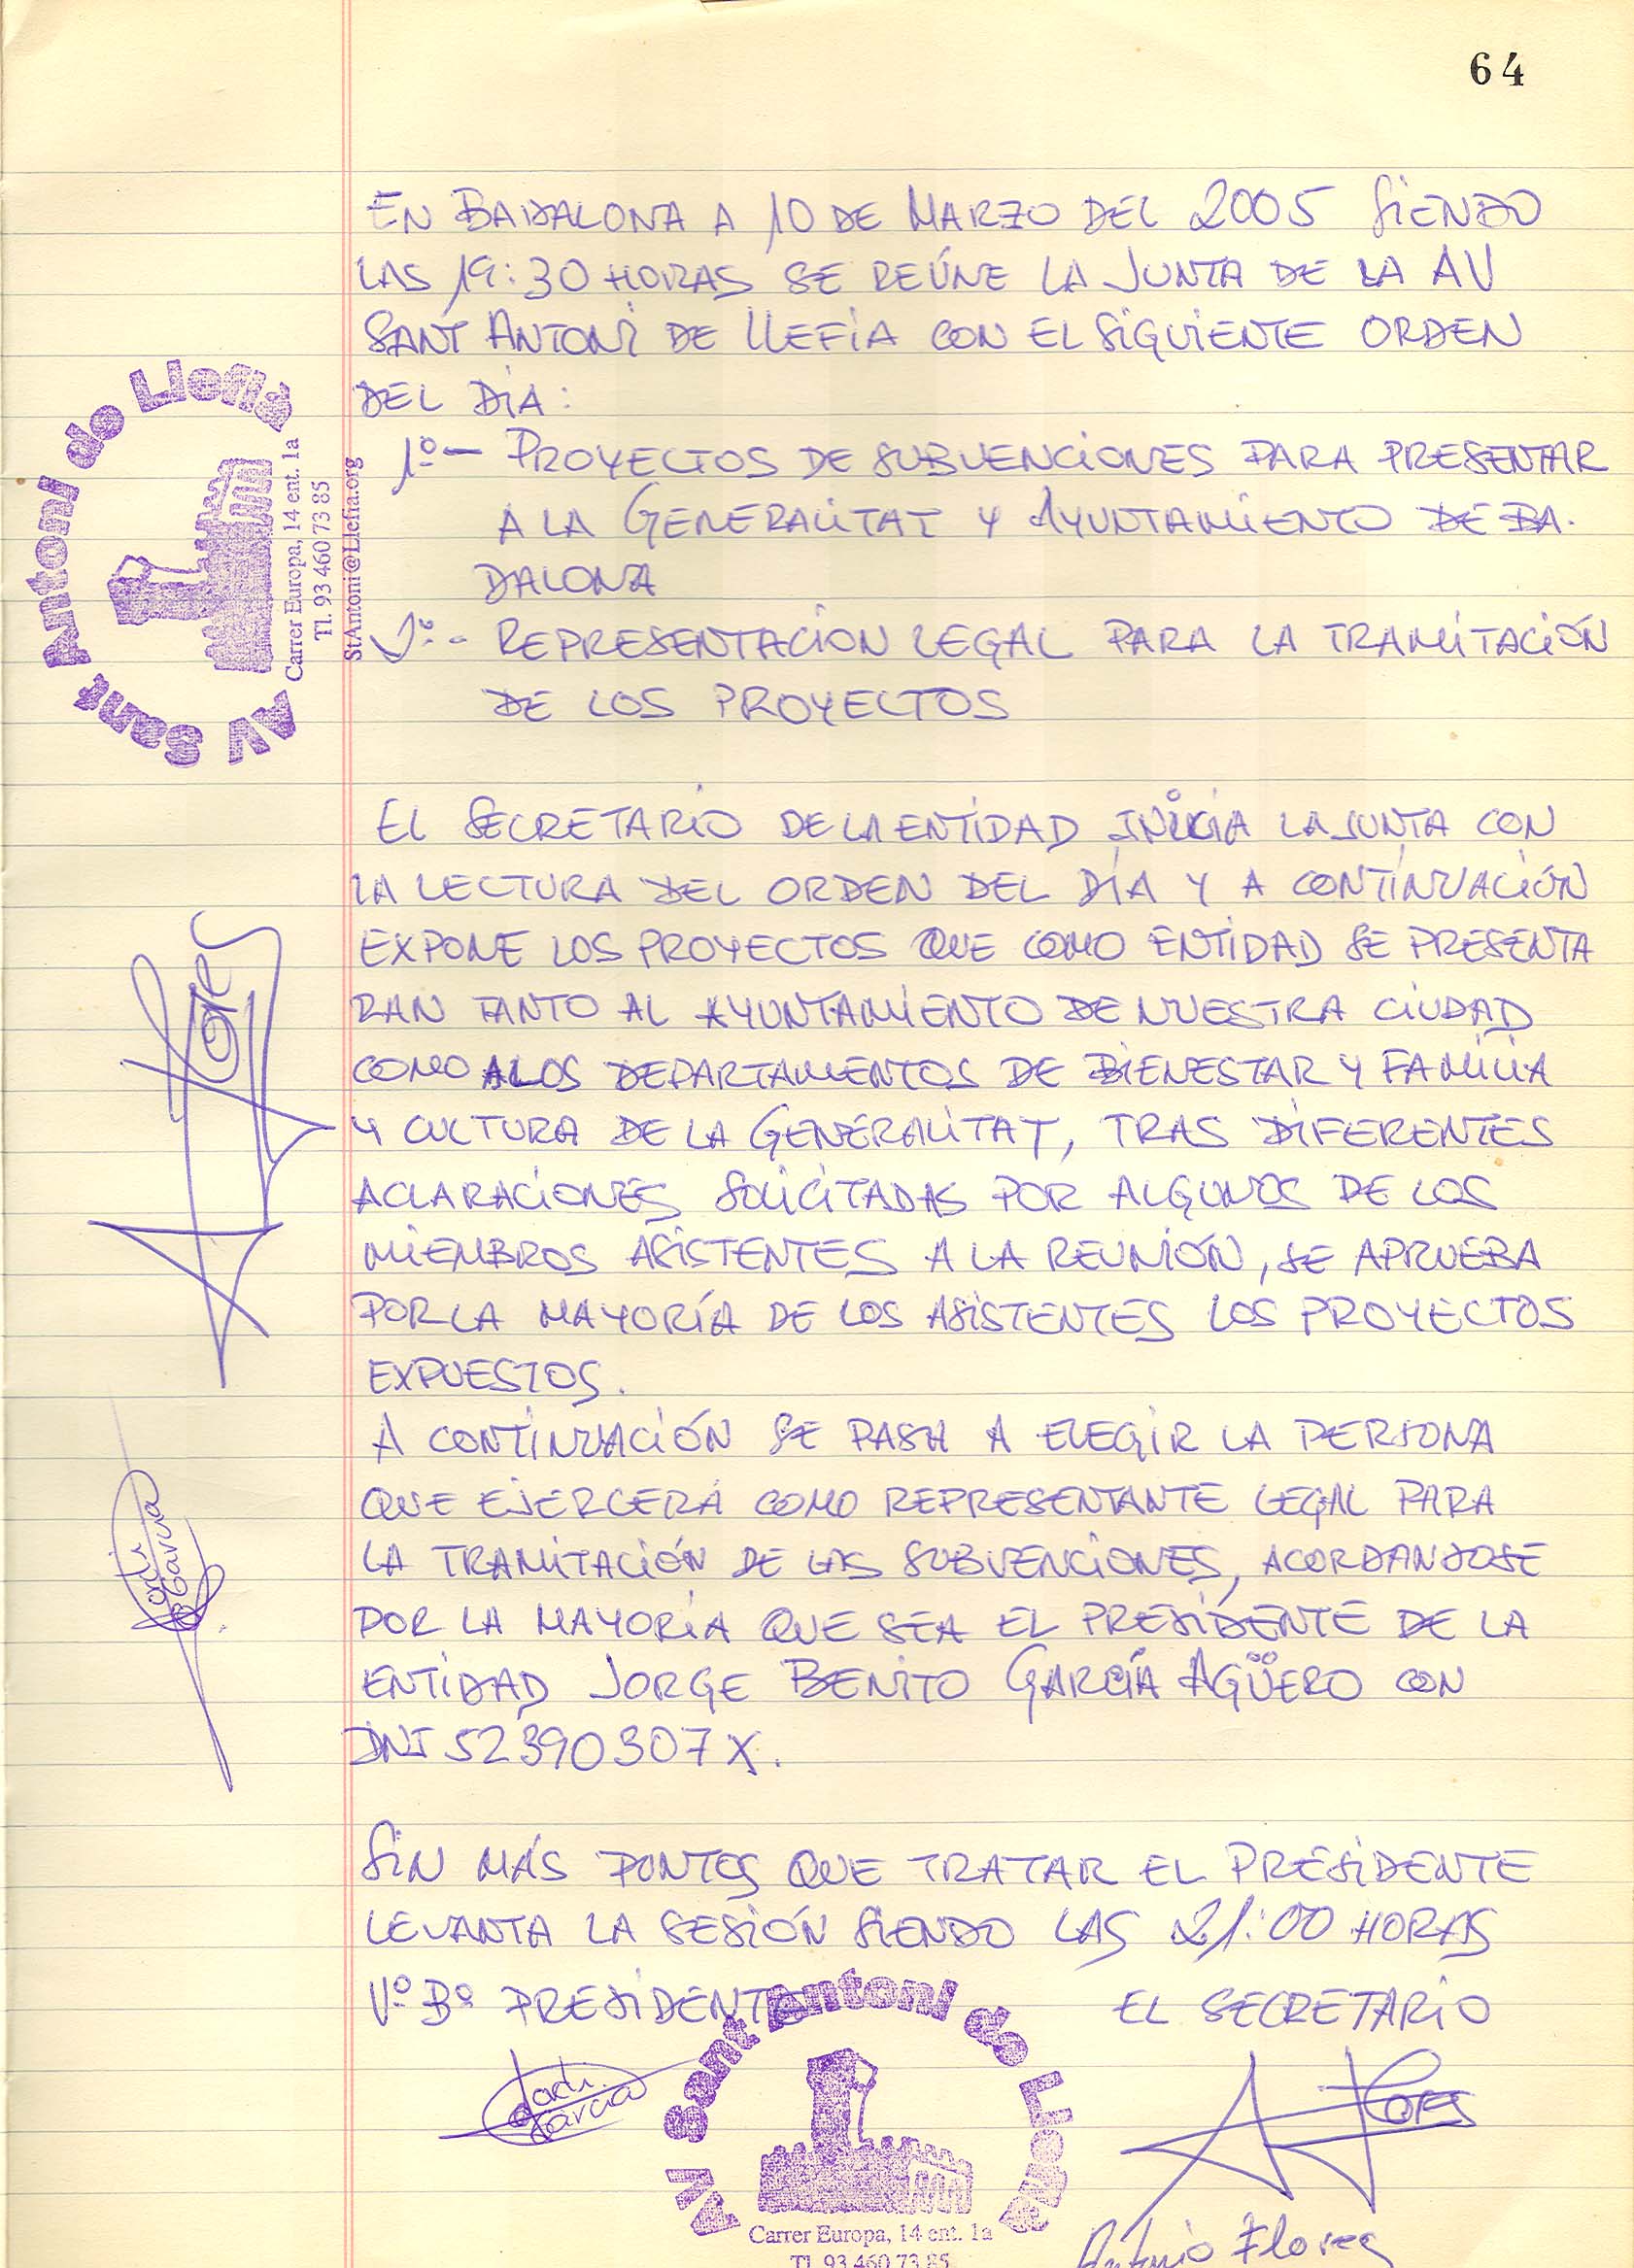 64
EN BADALONA A 10 DE MARZO DEL 2005 SIENDO
LAS 19:30 HORAS SE REÚNE LA JUNTA DE LA AV
SANT ANTONI DE LLEFIA CON EL SIGUIENTE ORDEN
DEL DIA:
1º- PROYECTOS DE SUBVENCIONES PARA PRESENTAR
A LA GENERALITAT Y AYUNTAMIENTO DE BA-
DALONA
REPRESENTACION LEGAL PARA LA TRAMITACIÓN
DE LOS PROYECTOS
AV Sant Antoni de Llefià
Carrer Europa, 14 ent. 1a
Tl. 93 460 73 85
StAntoni@Llefia.org
EL SECRETARIO DE LA ENTIDAD INICIA LA JUNTA CON
LA LECTURA DEL ORDEN DEL DÍA Y A CONTINUACIÓN
EXPONE LOS PROYECTOS QUE COMO ENTIDAD SE PRESENTA
RAN TANTO AL AYUNTAMIENTO DE NUESTRA CIUDAD
COMO A LOS DEPARTAMENTOS DE BIENESTAR Y FAMILIA
Y CULTURA DE LA GENERALITAT, TRAS DIFERENTES
ACLARACIONES SOLICITADAS POR ALGUNOS DE LOS
MIEMBROS ASISTENTES A LA REUNIÓN, SE APRUEBA
POR LA MAYORÍA DE LOS ASISTENTES LOS PROYECTOS
EXPUESTOS.
A CONTINUACIÓN SE PASA A ELEGIR LA PERSONA
QUE EJERCERÁ COMO REPRESENTANTE LEGAL PARA
LA TRAMITACIÓN DE LAS SUBVENCIONES, ACORDANDOSE
POR LA MAYORÍA QUE SEA EL PRESIDENTE DE LA
ENTIDAD JORGE BENITO GARCÍA AGÜERO CON
DNI 52390307X.
Jordi
B Garcia
SIN MÁS PUNTOS QUE TRATAR EL PRESIDENTE
LEVANTA LA SESIÓN SIENDO LAS 21:00 HORAS
Vº Bº PRESIDENTE EL SECRETARIO
Jordi
Garcia
A Flores
AV Sant Antoni de Llefià
Carrer Europa, 14 ent. 1a
Tl. 93 460 73 85
Antonio Flores